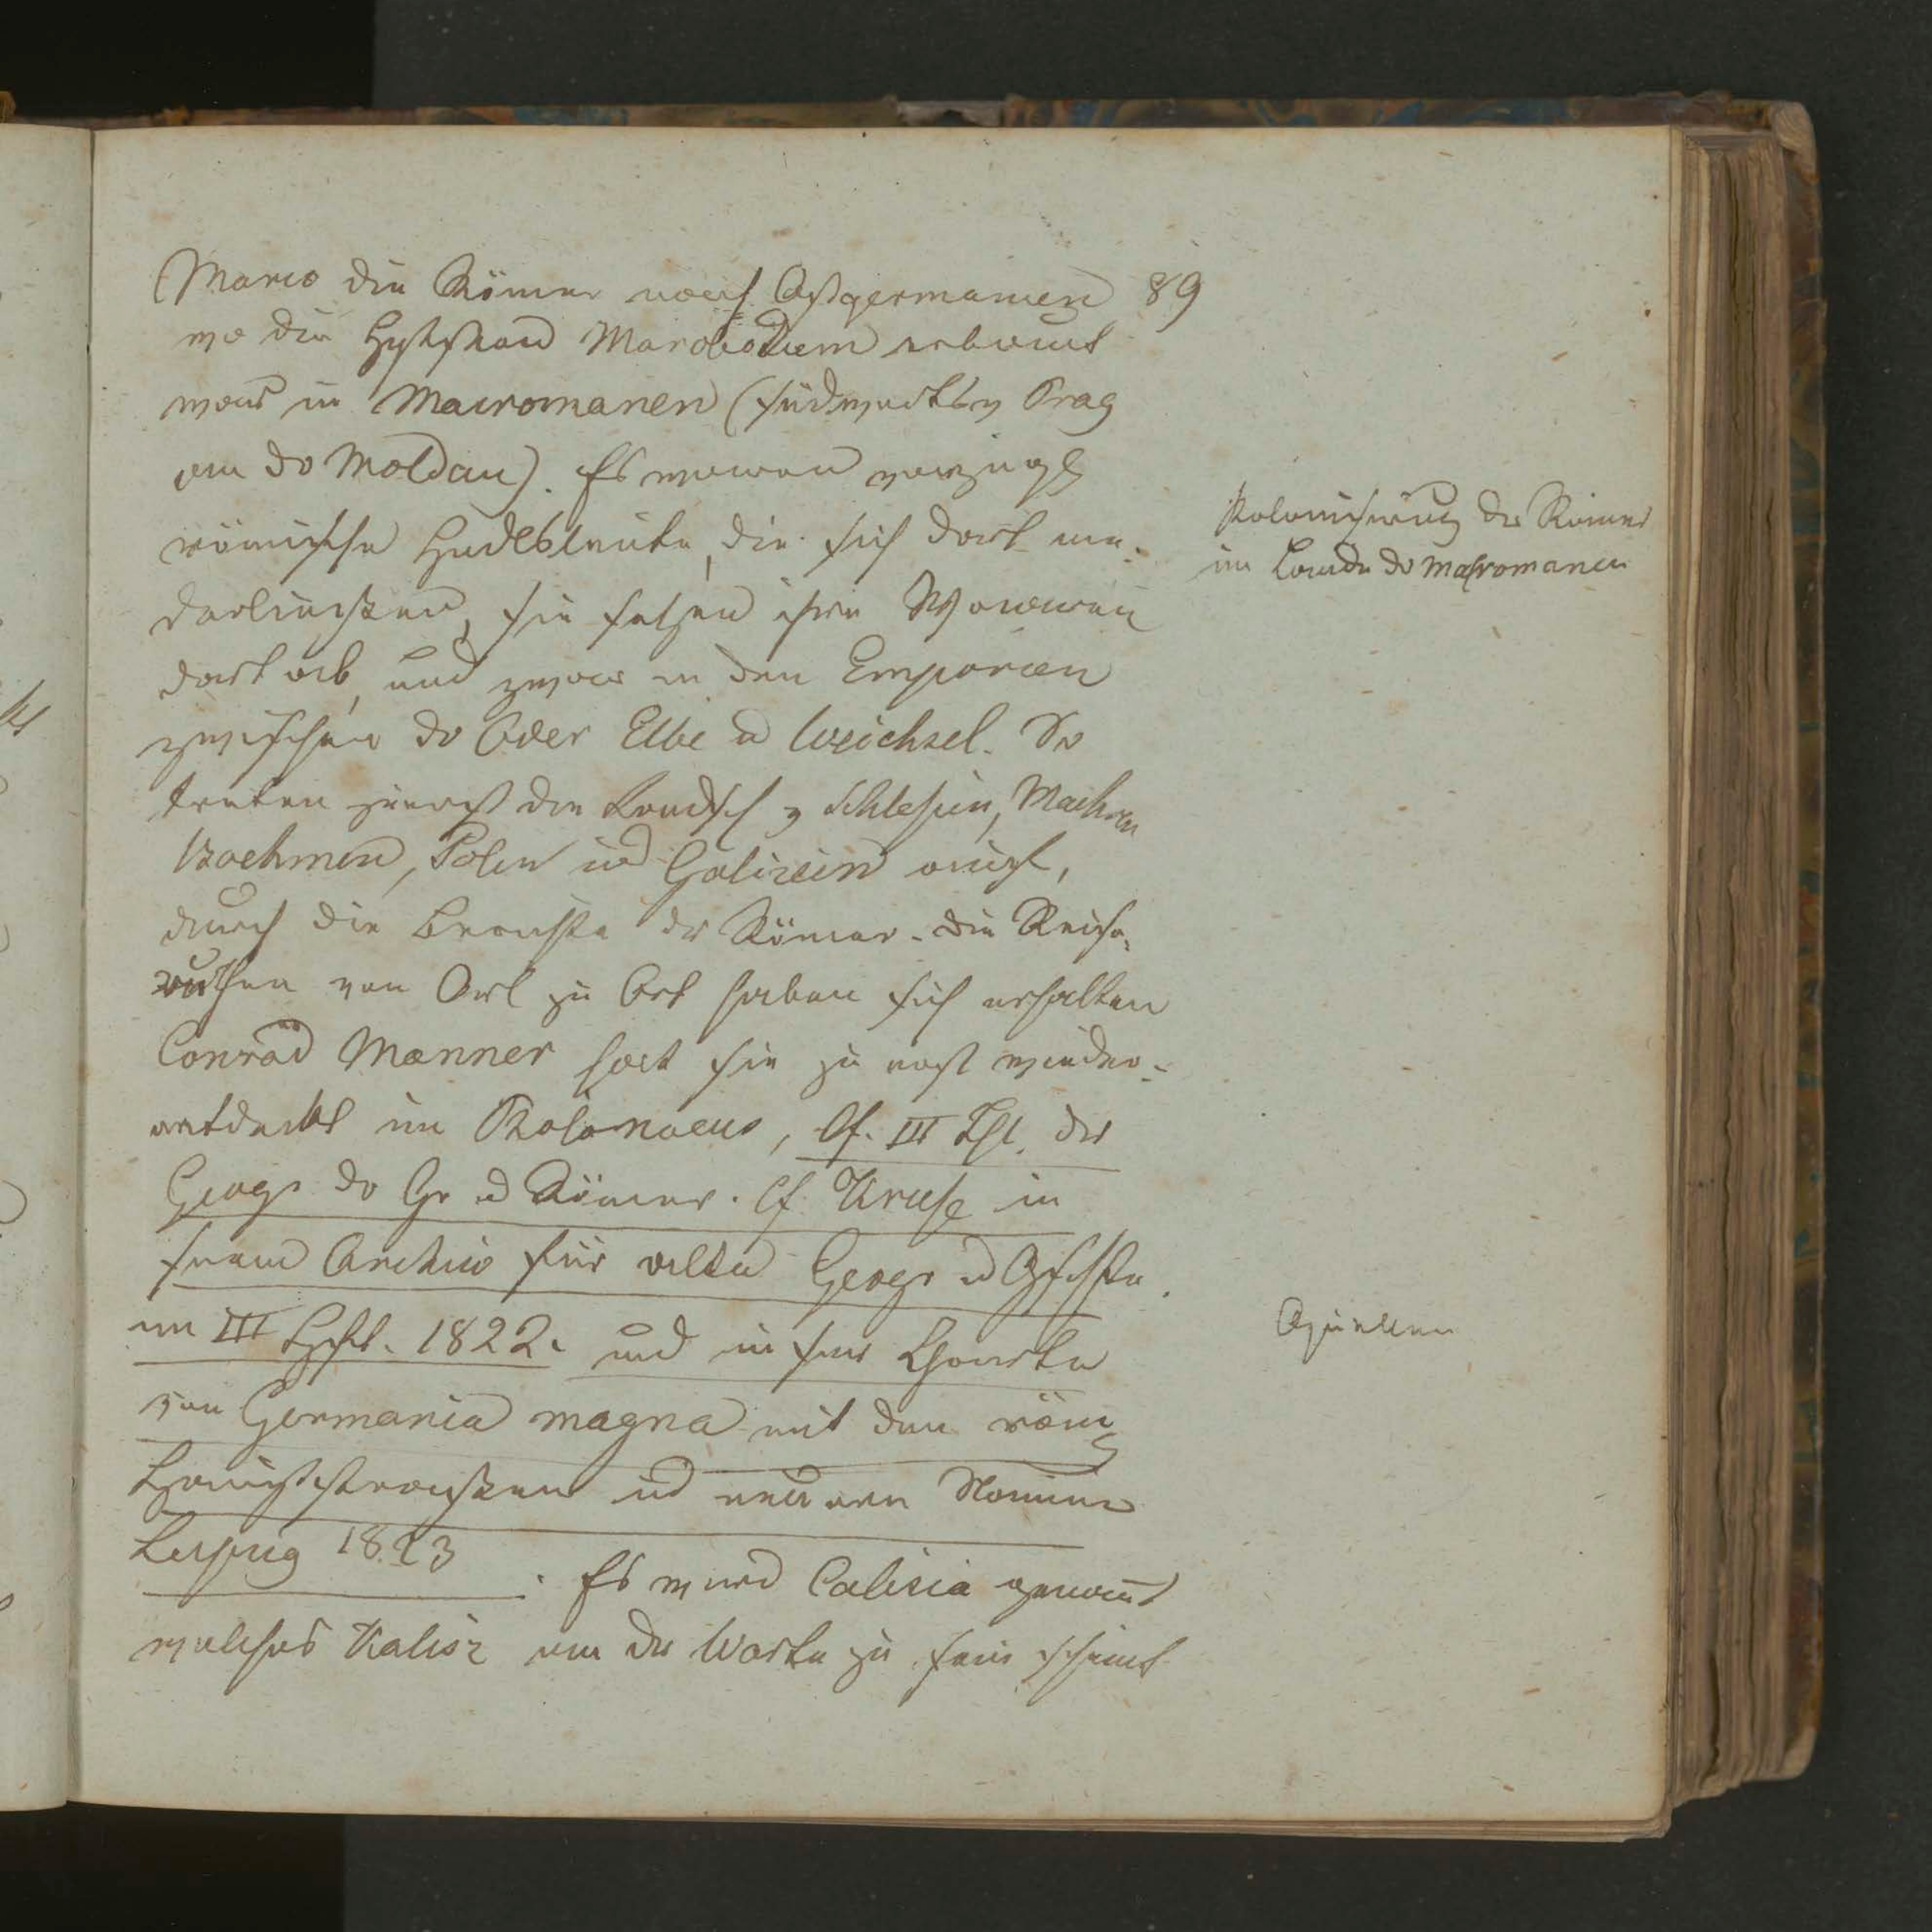 Marco die Römer nach Ostgermanien 89
wo die Hptstad Marobodum erbaut
ward in Macromanen (südwerts v Prag
an dr Moldau). Es waren vorzügl
römische Hndelsleute, die sich dort nie-
derliessen, sie setzen ihre Waaren
dort ab, und zwar in den Emporien
zwischen dr Oder Elbe u Weichsel. So
treten zuerst die Landsch v Schlesien, Maehren
Boehmen, Polen und Galizien auf,
durch die Berichte dr Römer. Die Reise-
routhen von Ort zu Ort haben sich erhalten
Conrad Manner hat sie zu erst wieder-
entdeckt im Ptolomaeus, Cf. III Thl. der
Geogr dr Gr u Römer. Cf. Kruse in
seinem Archiv für alte Geogr u Gschte.
im III Hft. 1822. und in sr Charte
von Germania magna mit den röm
Hauptstrassen und neueren Namen
Leipzig 1823. Es wird Calisia genannt
welches Kalisz an der Warte zu sein scheint
Kolonisirung der Römer
im Lande dr Macromanen
Quellen